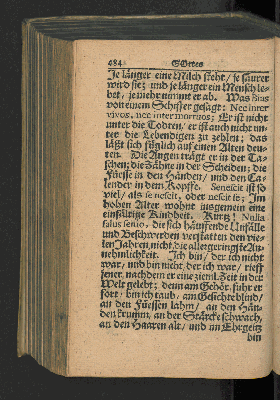 484
Je länger eine Milch stehet / je saurer
wird sie; und je länger ein Mensch le-
bet, je mehr nimmt er ab. Was Bias
von einem Schiffer gesagt: Nec inter
vivos, nec inter mortuos; Er ist nicht
unter die Todten, er ist auch nicht un-
ter die Lebendigen zu zehlen; das
läßt sich füglich auf einen Alten deu-
ten. Die Augen trägt er in der Ta-
schen; die Zähne in der Scheiden; die
Füesse in den Händen / und den Ca-
lender in dem Kopffe. Senescit ist so
viel / als se nescit, oder nescit se; Im
hohen Alter wohnt insgemein eine
einfältige Kindheit. Kurtz! Nulla
salus senio, die sich häuffende Unfälle
und Beschwerden verstatten den vie-
len Jahren nicht, die allergeringste An-
nehmlichkeit. Ich bin / der ich nicht
war / und bin nicht, der ich war / rieff
jener, nachdem er eine ziemL. Zeit in der
Welt gelebt; denn am Gehör, fuhr er
fort / bin ich taub / am Gesichte blind /
an den Füessen lahm / an den Hän-
den krumm, an der Stärcke schwach,
an den Haaren alt, und am Ehrgeitz
bin